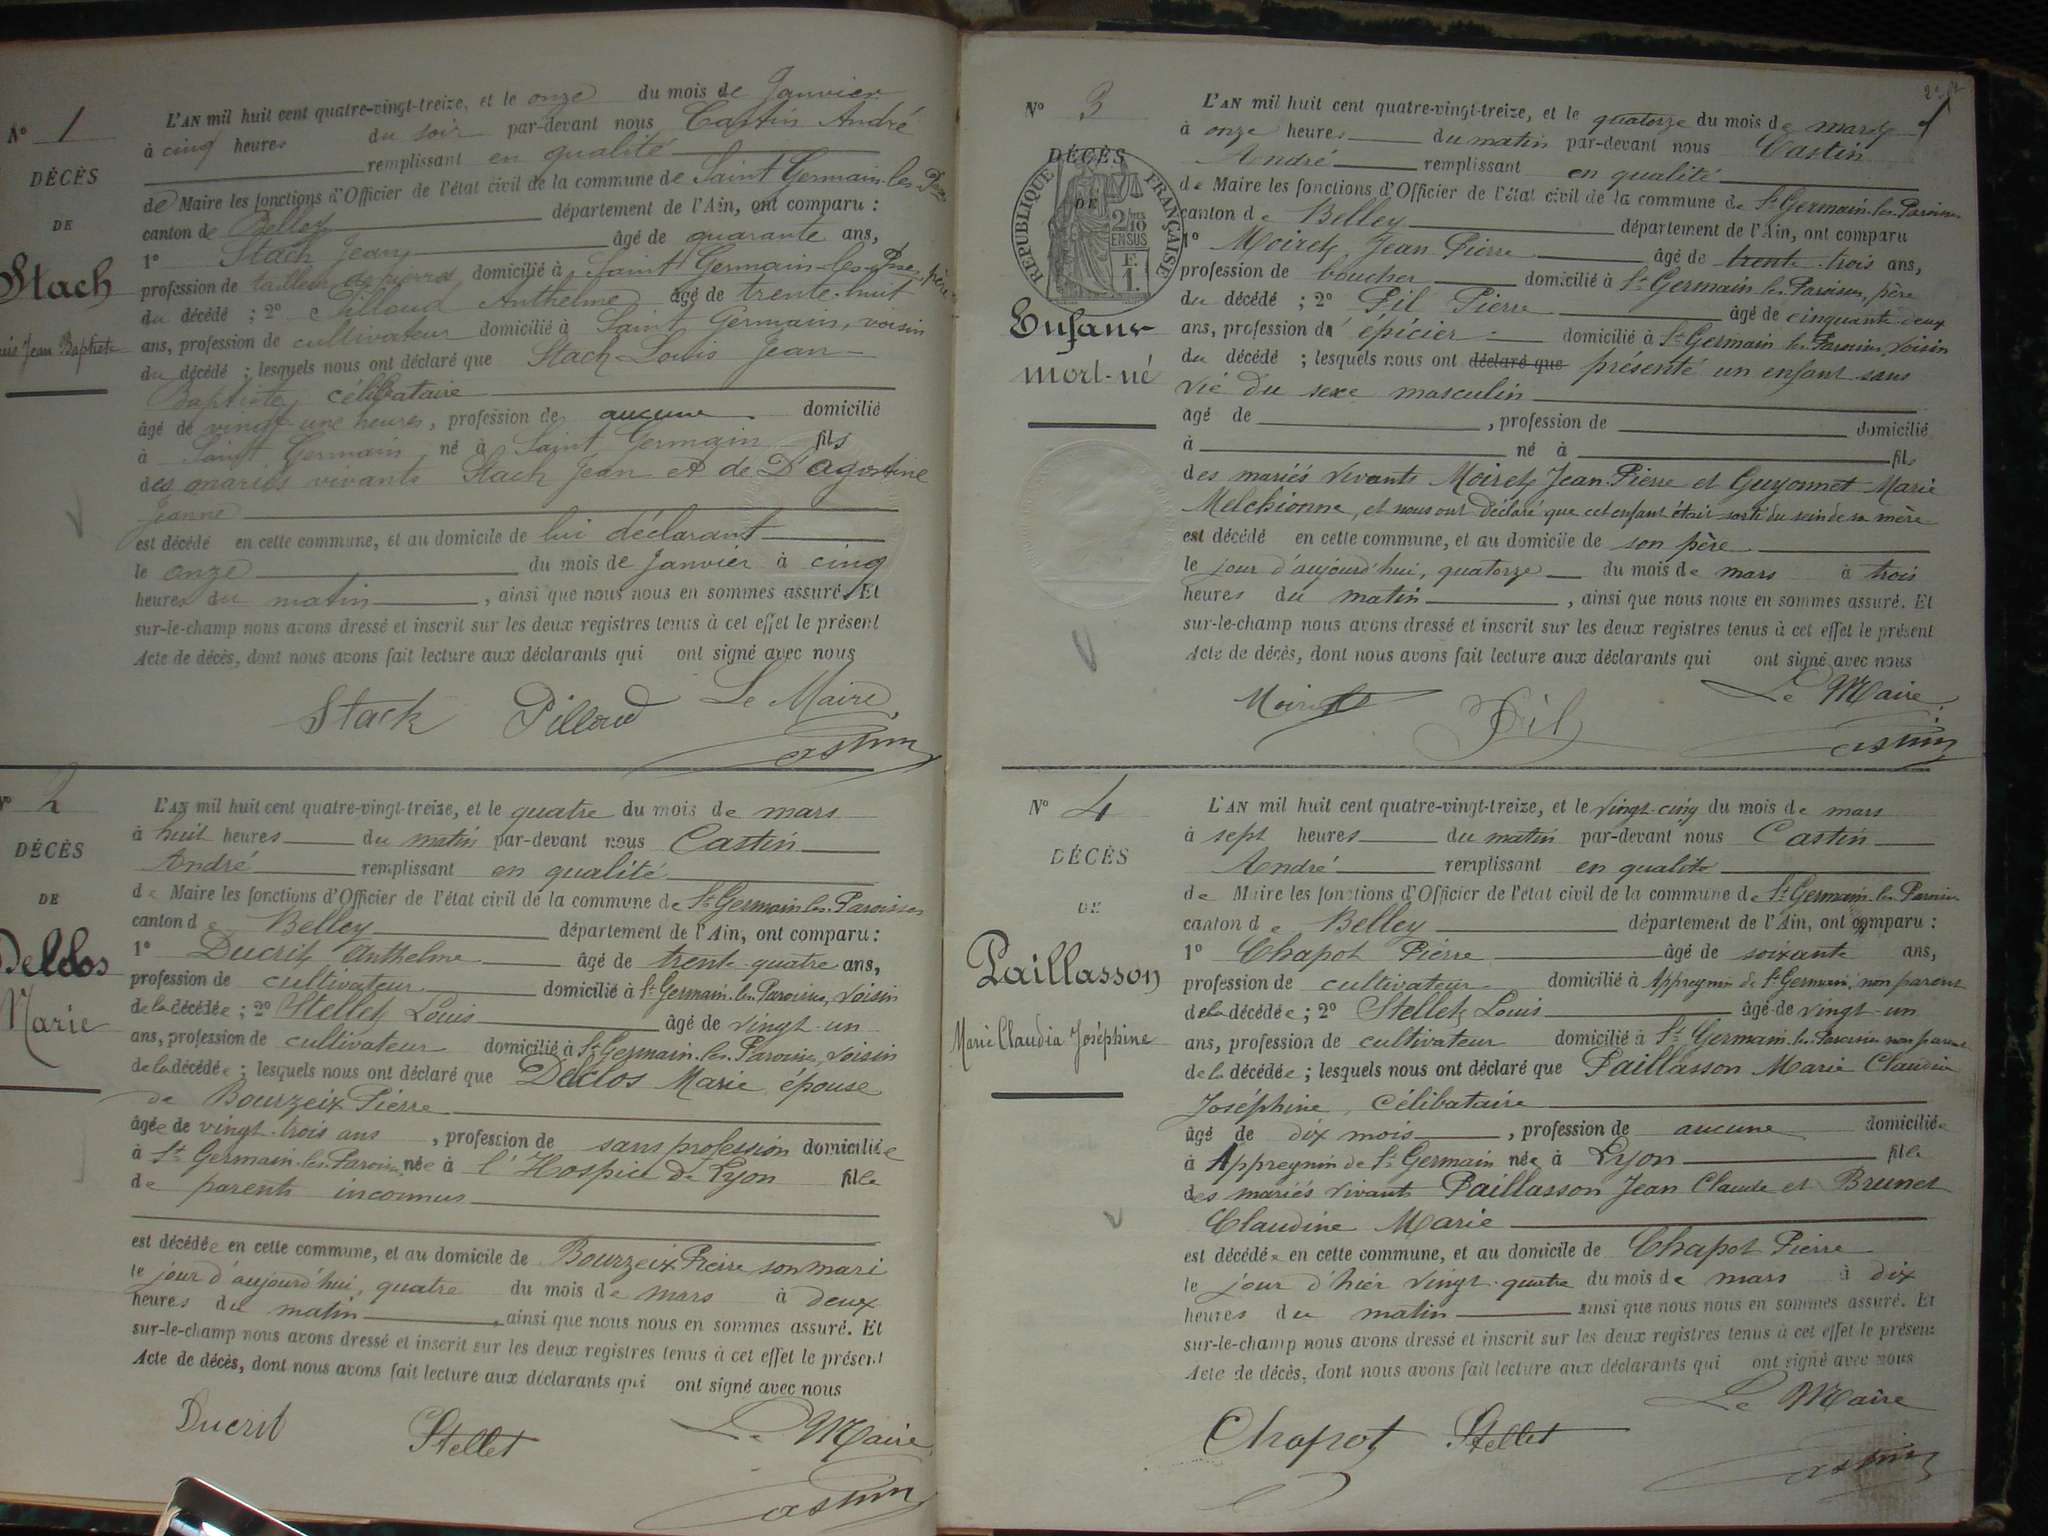 N° 1
DÉCÈS
DE
Stach
Louis Jean Baptiste
L'AN mil huit cent quatre-vingt-treize, et le onze du mois de Janvier
à cinq heures du soir par-devant nous Castin André
remplissant en qualité
de Maire les fonctions d'Officier de l'état civil de la commune de Saint Germain-les-Par
canton de Belley département de l'Ain, ont comparu :
1° Stach Jean âgé de quarante ans,
profession de tailleur de pierres domicilié à Saint Germain-les-Par père
du décédé ; 2° Pilloud Anthelme âgé de trente-huit
ans, profession de cultivateur domicilié à Saint Germain, voisin
du décédé ; lesquels nous ont déclaré que Stach Louis Jean
Baptiste, célibataire
âgé de vingt-une heures, profession de aucune domicilié
à Saint Germain né à Saint Germain fils
des mariés vivants Stach Jean et de D'agostine
Jeanne
est décédé en cette commune, et au domicile de lui déclarant
le onze du mois de Janvier à cinq
heures du matin, ainsi que nous nous en sommes assuré. Et
sur-le-champ nous avons dressé et inscrit sur les deux registres tenus à cet effet le présent
Acte de décès, dont nous avons fait lecture aux déclarants qui ont signé avec nous
Stack Pilloud Le Maire,
Castin
N° 2
DÉCÈS
DE
Delclos
Marie
L'AN mil huit cent quatre-vingt-treize, et le quatre du mois de mars
à huit heures du matin par-devant nous Castin
André remplissant en qualité
de Maire les fonctions d'Officier de l'état civil de la commune de St Germain-les-Paroisses
canton de Belley département de l'Ain, ont comparu :
1° Ducrit, Anthelme âgé de trente-quatre ans,
profession de cultivateur domicilié à St Germain-les-Paroisses, voisin
de la décédée ; 2° Stellet Louis âgé de vingt-un
ans, profession de cultivateur domicilié à St Germain-les-Paroisses, voisin
de la décédée ; lesquels nous ont déclaré que Delclos Marie, épouse
de Bourzeix Pierre
âgée de vingt-trois ans, profession de sans profession domiciliée
à St Germain-les-Paroisses née à l'Hospice de Lyon fille
de parents inconnus
est décédée en cette commune, et au domicile de Bourzeix Pierre son mari
le jour d'aujourd'hui, quatre du mois de mars à deux
heures du matin, ainsi que nous nous en sommes assuré. Et
sur-le-champ nous avons dressé et inscrit sur les deux registres tenus à cet effet le présent
Acte de décès, dont nous avons fait lecture aux déclarants qui ont signé avec nous
Ducrit Stellet Le Maire,
Castin
N° 3
DÉCÈS
DE
RÉPUBLIQUE FRANÇAISE
2/10
EN SUS
F.
1.
Enfant
mort-né
L'AN mil huit cent quatre-vingt-treize, et le quatorze du mois de mars
à onze heures du matin par-devant nous Castin
André remplissant en qualité
de Maire les fonctions d'Officier de l'état civil de la commune de St Germain-les-Paroisses
canton de Belley département de l'Ain, ont comparu
1° Moiret Jean Pierre âgé de trente-trois ans,
profession de boucher domicilié à St Germain les Paroisses, père
du décédé ; 2° Pil Pierre âgé de cinquante-deux
ans, profession d'épicier domicilié à St Germain les Paroisses, voisin
du décédé ; lesquels nous ont déclaré que présenté un enfant sans
vie du sexe masculin
âgé de , profession de domicilié
à né à fils
des mariés vivants Moiret Jean Pierre et Guyonnet Marie
Melchionne, et nous ont déclaré que cet enfant était sorti du sein de sa mère
est décédé en cette commune, et au domicile de son père
le jour d'aujourd'hui, quatorze du mois de mars à trois
heures du matin, ainsi que nous nous en sommes assuré. Et
sur-le-champ nous avons dressé et inscrit sur les deux registres tenus à cet effet le présent
Acte de décès, dont nous avons fait lecture aux déclarants qui ont signé avec nous
Moiret Pil Le Maire.
Castin
N° 4
DÉCÈS
DE
Paillasson
Marie Claudia Joséphine
L'AN mil huit cent quatre-vingt-treize, et le vingt-cinq du mois de mars
à sept heures du matin par-devant nous Castin
André remplissant en qualité
de Maire les fonctions d'Officier de l'état civil de la commune de St Germain-les-Paroisses
canton de Belley département de l'Ain, ont comparu :
1° Chapot Pierre âgé de soixante ans,
profession de cultivateur domicilié à Appregnin de St Germain, non parent
de la décédée ; 2° Stellet Louis âgé de vingt-un
ans, profession de cultivateur domicilié à St Germain-les-Paroisses non parent
de la décédée ; lesquels nous ont déclaré que Paillasson Marie Claudia
Joséphine, célibataire
âgé de dix mois, profession de aucune domiciliée
à Appregnin de St Germain née à Lyon fille
des mariés vivants Paillasson Jean Claude et Brunet
Claudine Marie
est décédée en cette commune, et au domicile de Chapot Pierre
le jour d'hier vingt-quatre du mois de mars à dix
heures du matin ainsi que nous nous en sommes assuré. Et
sur-le-champ nous avons dressé et inscrit sur les deux registres tenus à cet effet le présent
Acte de décès, dont nous avons fait lecture aux déclarants qui ont signé avec nous
Chapot Stellet Le Maire
Castin